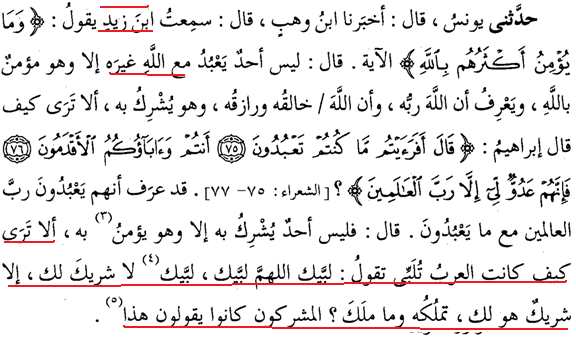 حدَّثنى يونسُ ، قال : أخبَرنا ابنُ وهبٍ ، قال : سمِعتُ ابنَ زيدٍ يقولُ : ﴿ وَمَا
يُؤْمِنُ أَكْثَرُهُم بِاللَّهِ ﴾ الآية . قال : ليس أحدٌ يَعْبُدُ مع اللَّهِ غيرَه إلا وهو مؤمنٌ
باللَّهِ ، ويَعْرِفُ أن اللَّهَ ربُّه ، وأن اللَّهَ / خالقُه ورازقُه ، وهو يُشْرِكُ به ، ألا تَرَى كيف
قال إبراهيمُ : ﴿ قَالَ أَفَرَءَيْتُم مَّا كُنتُمْ تَعْبُدُونَ ٧٥ أَنتُمْ وَءَابَآؤُكُمُ الْأَقْدَمُونَ ٧٦
فَإِنَّهُمْ عَدُوٌّ لِّىٓ إِلَّا رَبَّ الْعَٰلَمِينَ ﴾ ؟ [الشعراء : ٧٥- ٧٧] . قد عرَف أنهم يَعْبُدُونَ ربَّ
العالمين مع ما يَعْبُدُونَ . قال : فليس أحدٌ يُشْرِكُ به إلا وهو يؤمنُ(٣) به ، ألا تَرَى
كيف كانت العربُ تُلَبِّى تقولُ : لبَّيك اللهمَّ لبَّيك ، لبَّيك(٤) لا شريكَ لك ، إلا
شريكٌ هو لك ، تملُكُه وما ملَكَ ؟ المشركون كانوا يقولون هذا(٥) .